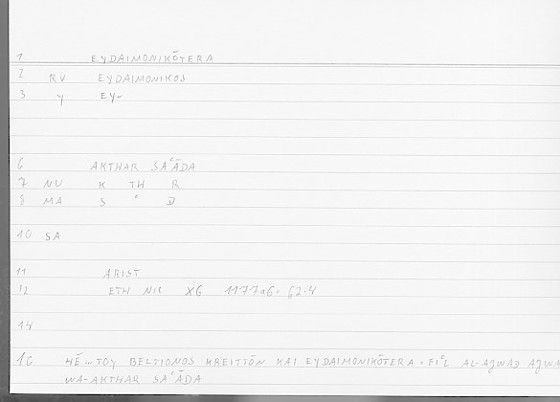 1 EYDAIMONIKŌTERA
2 RV EYDAIMONIKOS
3 Y EY-
6 AKTHAR SAʿĀDA
7 NU K TH R
8 MA S ʿ D
10 SA
11 ARIST
12 ETH NIC X6 1177a6 = 62.4
14
16 HĒ ... TOY BELTIONOS KREITTŌN KAI EYDAIMONIKŌTERA = FIʿL AL-AJWAD AJWA
WA-AKTHAR SAʿĀDA